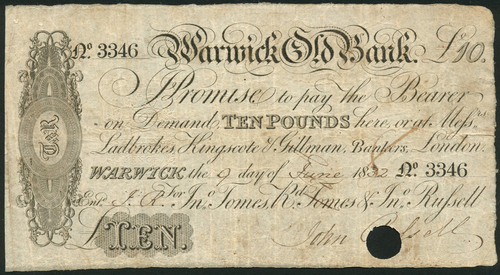 No. 3346 Warwick Old Bank. £10.
Promise to pay the Bearer
on Demand, TEN POUNDS here, or at Messrs.
Ladbrokes Kingscote & Gillman, Bankers, London.
WARWICK the 9 day of June 1832 No. 3346
Entd. J. R. For Jno. Tomes, Rd. Tomes & Jno. Russell
£TEN. John Russell
T&R